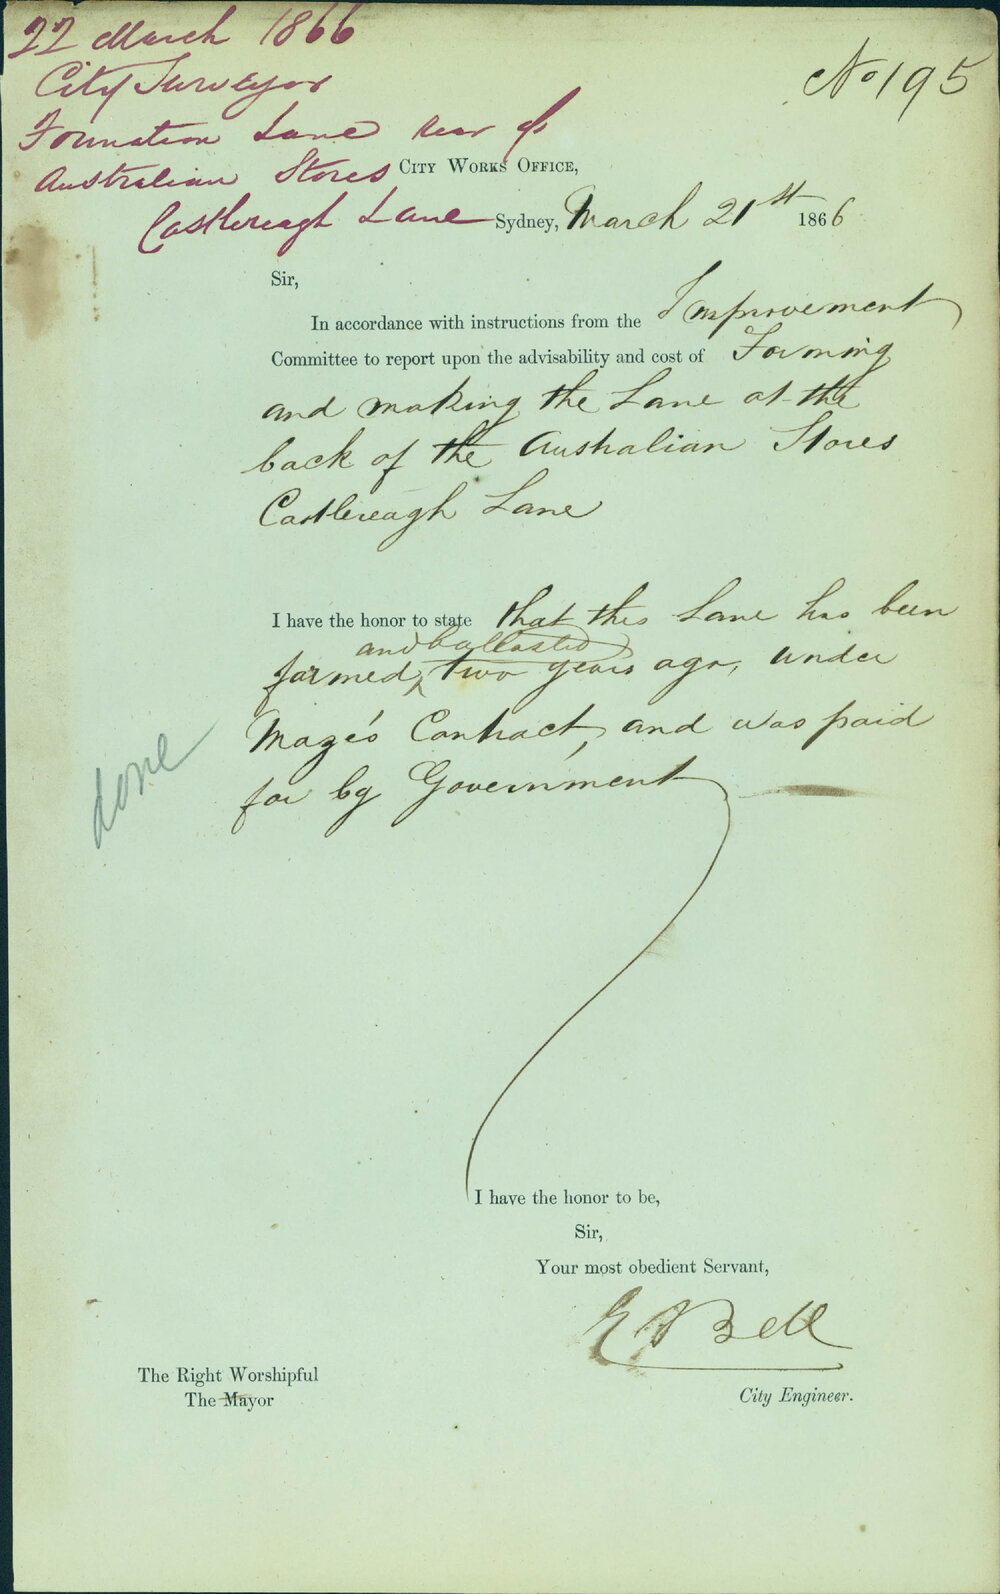 22 March 1866
City Surveyor
Formation Lane rear of
Australian Stores
Castlereagh Lane
No 195
CITY WORKS OFFICE,
Sydney, March 21st 1866
Sir,
In accordance with instructions from the Improvement
Committee to report upon the advisability and cost of Forming
and making the Lane at the
back of the Australian Stores
Castlereagh Lane
I have the honor to state that this Lane has been
and ballasted
formed, two years ago, under
Maze's Contract, and was paid
for by Government
done
I have the honor to be,
Sir,
Your most obedient Servant,
E Bell
City Engineer.
The Right Worshipful
The Mayor